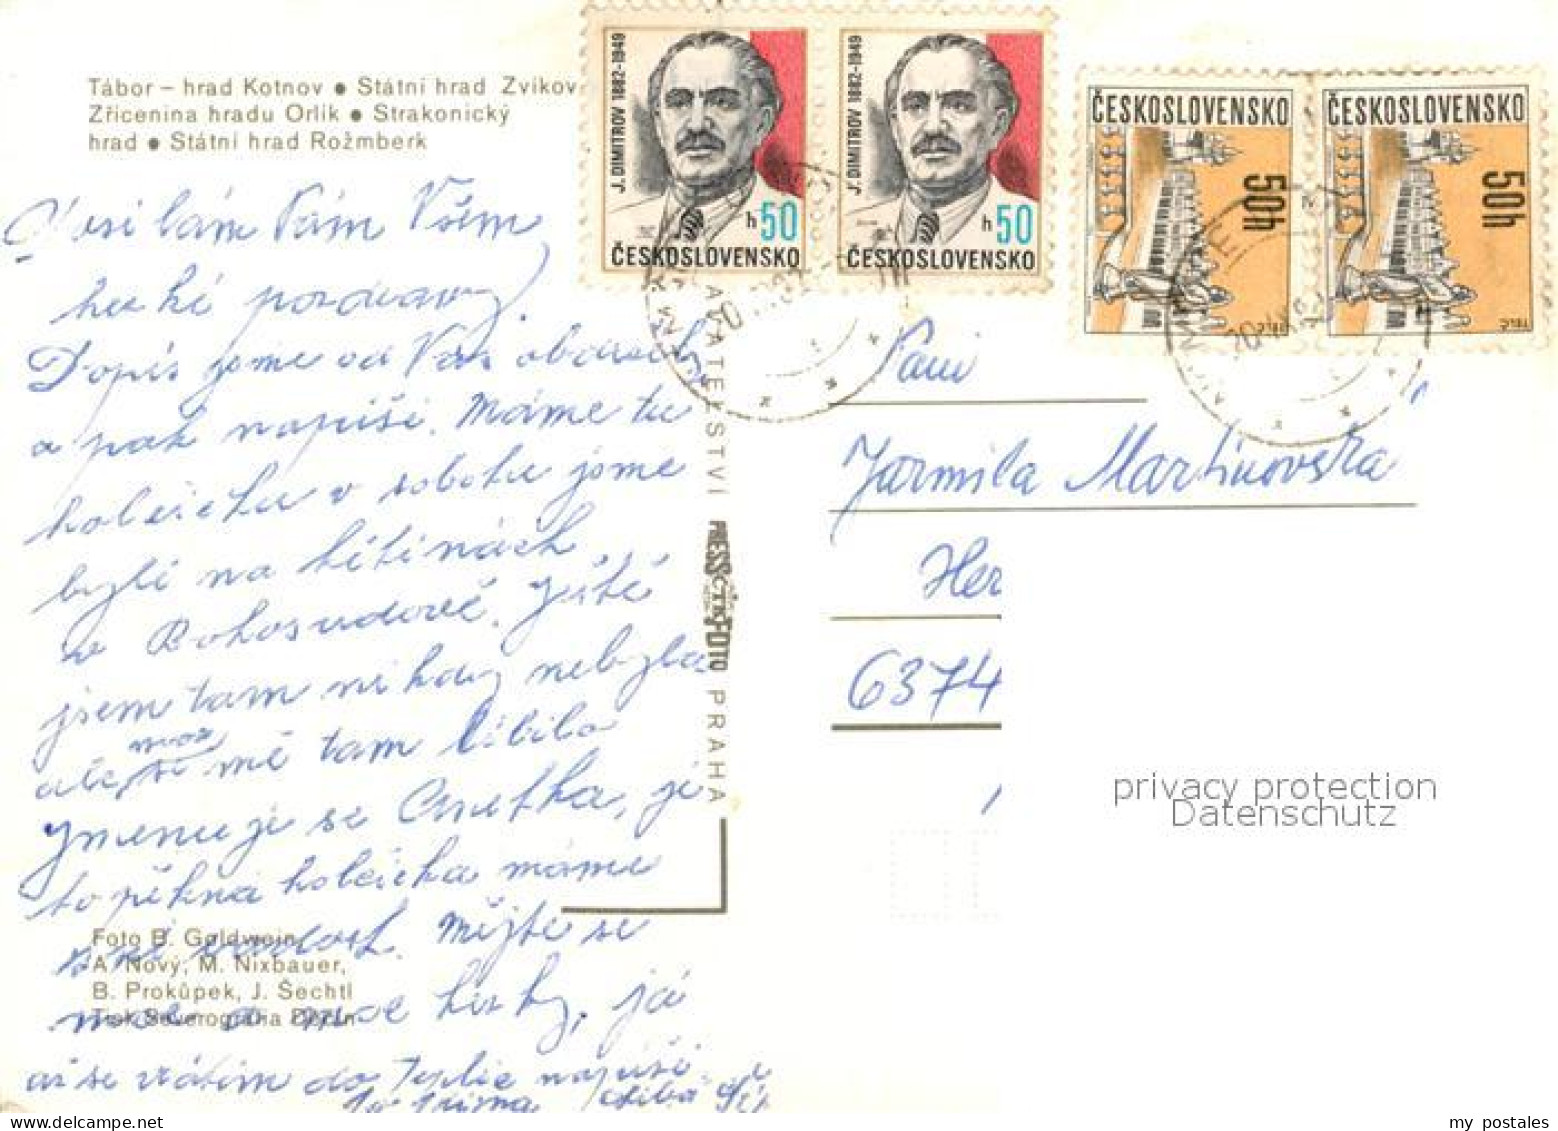 Tábor – hrad Kotnov ● Státní hrad Zvíkov
Zřícenina hradu Orlík ● Strakonický
hrad ● Státní hrad Rožmberk
J. DIMITROV 1882-1949
h 50
ČESKOSLOVENSKO
J. DIMITROV 1882-1949
h 50
ČESKOSLOVENSKO
ČESKOSLOVENSKO
50h
TELČ
ČESKOSLOVENSKO
50h
TELČ
Posílám Vám Všem
hezké pozdravy.
Dopis jsme od Vás obdrželi
a pak napíši. Máme tu
holčičku v sobotu jsme
byli na křtinách
v Bohosudově. Ještě
jsem tam nikdy nebyla
ale moc se mě tam líbilo
jmenuje se Anetka, je
to pěkná holčička máme
radost. Mějte se
moc a moc hezky, já
až se vrátím do Teplic napíši.
VATELSTVÍ
PRESSFOTO
ČTK
PRAHA
Paní
Jarmila Martinovská
Her
6374
privacy protection
Datenschutz
Foto B. Goldwein,
A. Nový, M. Nixbauer,
B. Prokůpek, J. Šechtl
Tisk Severografia Děčín
my postales